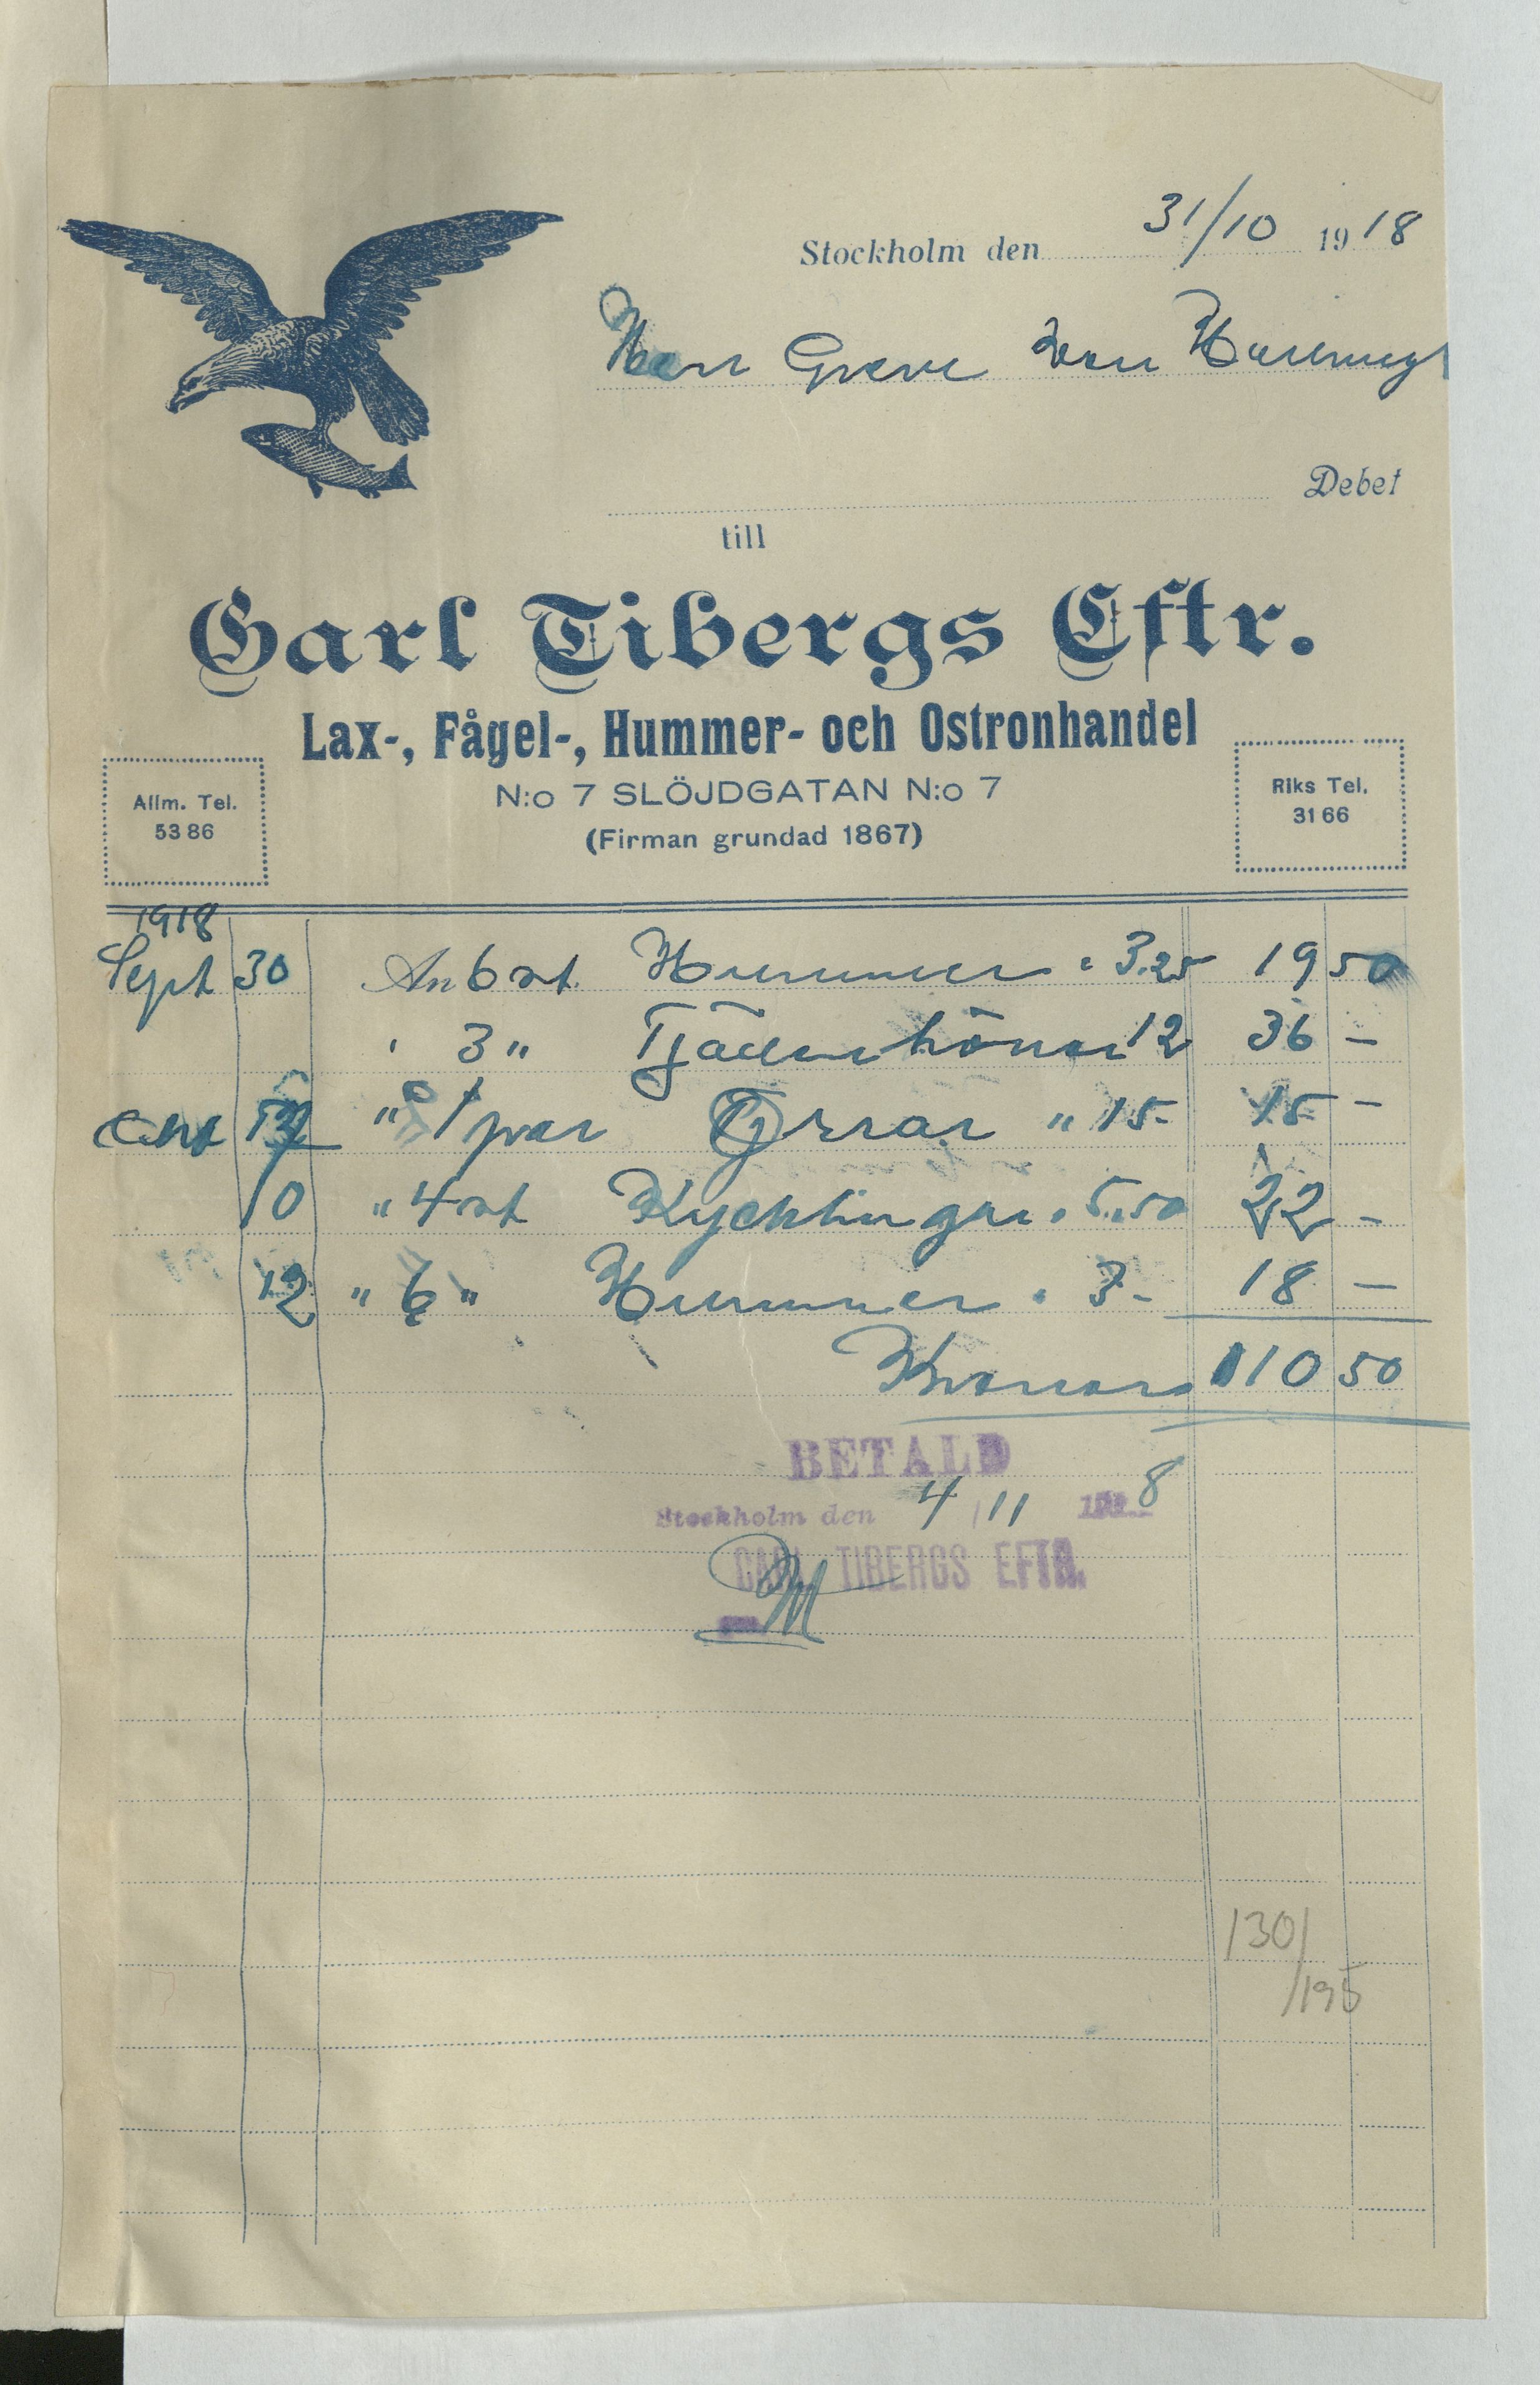 Stockholm den 31/10 1918
Herr Greve von Hallwyl
Debet
till
Carl Tibergs Eftr.
Lax-, Fågel-, Hummer- och Ostronhandel
N:o 7 SLÖJDGATAN N:o 7
(Firman grundad 1867)
Allm. Tel.
53 86
Riks Tel.
31 66
1918
Sept 30 An 6 st. Hummer " 3.25 19 50
" 3 " Tjäderhönor 12 36 –
Okt " 1 par Orrar " 15- 15 –
10 " 4 st Kycklingar " 5.50 22 –
12 " 6 " Hummer " 3- 18 –
Kronor 110 50
BETALD
Stockholm den 4/11 8
CARL TIBERGS EFTR.
130/
/195